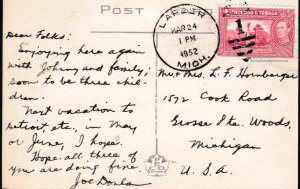 POST
LAPEER
MAR 24
1 PM
1952
MICH.
TRINIDAD & TOBAGO
Dear Folks:
Enjoying here again
with Johnny and family;
soon to be three chil-
dren.
Next vacation to
Detroit etc., in May
or June, I hope.
Hope all three of
you are doing fine.
Joe Dorlan
Mr + Mrs. L. F. Hornberger
1572 Cook Road
Grosse Pte Woods,
Michigan
U. S. A.